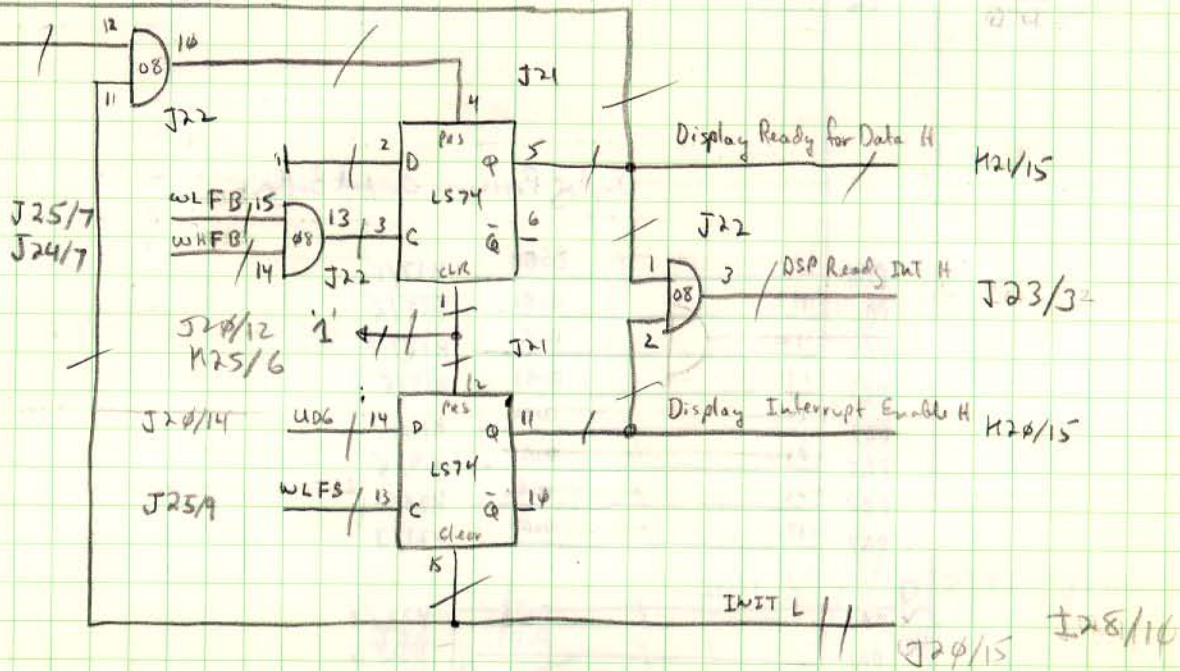 12
10
08
11
J22
J21
4
PRS
Display Ready for Data H
H21/15
1
2
D
Q
5
LS74
J25/7
J24/7
WLFB
15
08
13
3
C
Q̅
6
WHFB
14
J22
CLR
1
J22
1
08
3
DSP Ready INT H
J23/3
2
J20/12
H25/6
'1'
J21
12
PRS
J20/14
UD6
14
D
Q
11
Display Interrupt Enable H
H20/15
LS74
J25/9
WLFS
13
C
Q̅
10
Clear
15
INIT L
J20/15